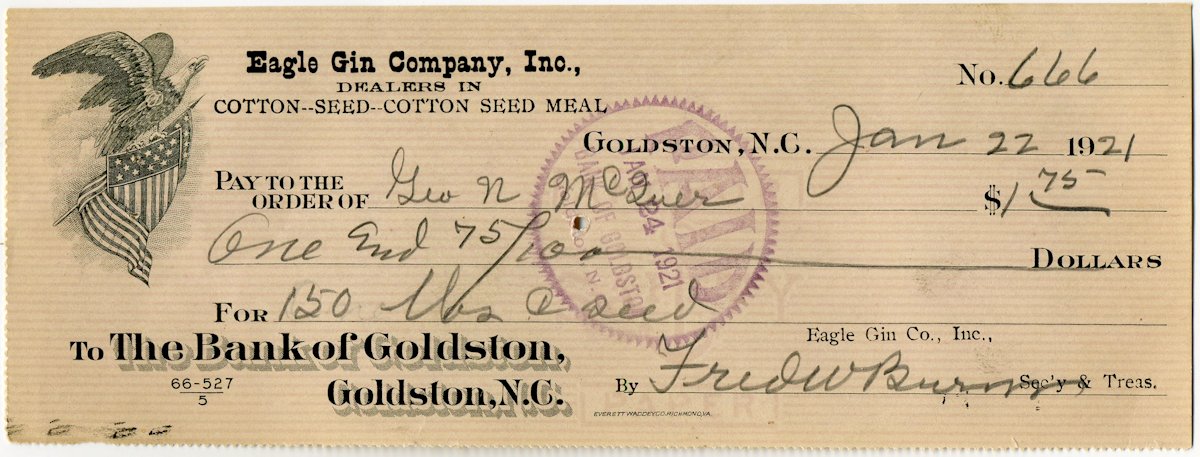 Eagle Gin Company, Inc.,
DEALERS IN
COTTON--SEED--COTTON SEED MEAL
No. 666
GOLDSTON, N.C. Jan 22 1921
PAY TO THE ORDER OF Geo N McIver $1 75
One And 75/100 DOLLARS
FOR 150 lbs C Seed
To The Bank of Goldston,
Goldston, N.C.
66-527
5
Eagle Gin Co., Inc.,
By Fred W Burns Sec'y & Treas.
EVERETT WADDEY CO. RICHMOND, VA.
PAID
JAN 24 1921
BANK OF GOLDSTON
GOLDSTON, N.C.